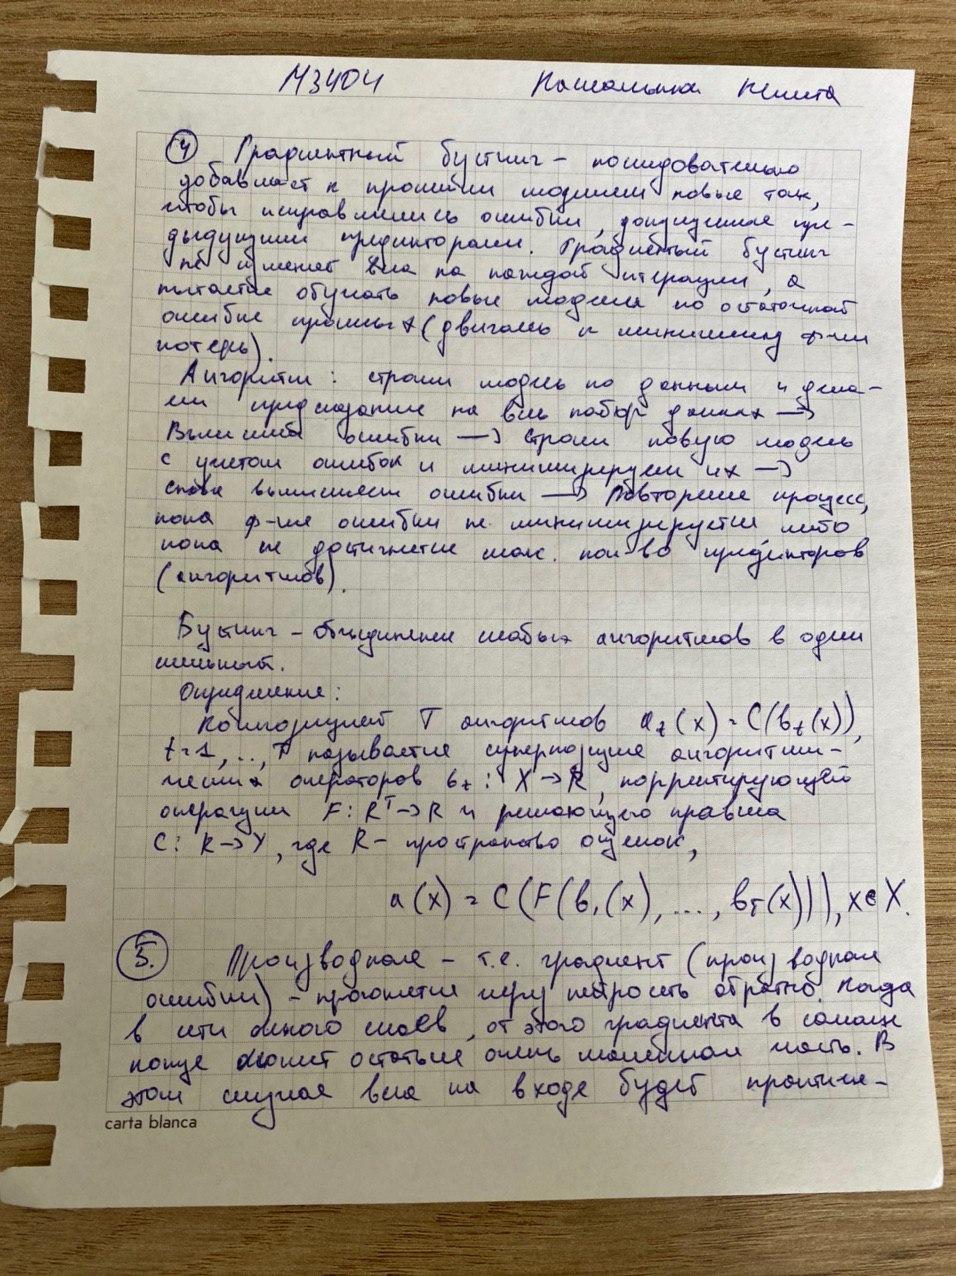 М3404 Никита
④ Градиентный бустинг - последовательно
добавляет к прошлым моделям новые так,
чтобы исправлялись ошибки, допущенные пре-
дыдущими предикторами. Градиентый бустинг
не изменяет веса на каждой итерации, а
пытается обучать новые модели по остаточной
ошибке прошлых (двигаясь к минимуму ф-ии
потерь).
Алгоритм: строим модель по данным и дела-
ем предсказание на весь набор данных →
Вычисляем ошибки → строим новую модель
с учетом ошибок и минимизируем их →
снова вычисляем ошибки → Повторяем процесс,
пока ф-ия ошибки не минимизируется либо
пока не достигнется макс. кол-во предикторов
(алгоритмов).
Бустинг - объединение слабых алгоритмов в один
сильный.
Определение:
Композицией T алгоритмов a_t(x) = C(b_t(x)),
t=1,...,T называется суперпозиция алгоритми-
ческих операторов b_t: X→R, корректирующей
операции F: R^T→R и решающего правила
C: R→Y, где R - пространство оценок,
a(x) = C(F(b_1(x), ..., b_T(x))), x∈X.
⑤. Производная - т.е. градиент (производная
ошибки) - прогоняется через нейросеть обратно. Когда
в сети много слоев, от этого градиента в самом
конце может остаться очень маленькая часть. В
этом случае веса на входе будет практиче-
carta blanca